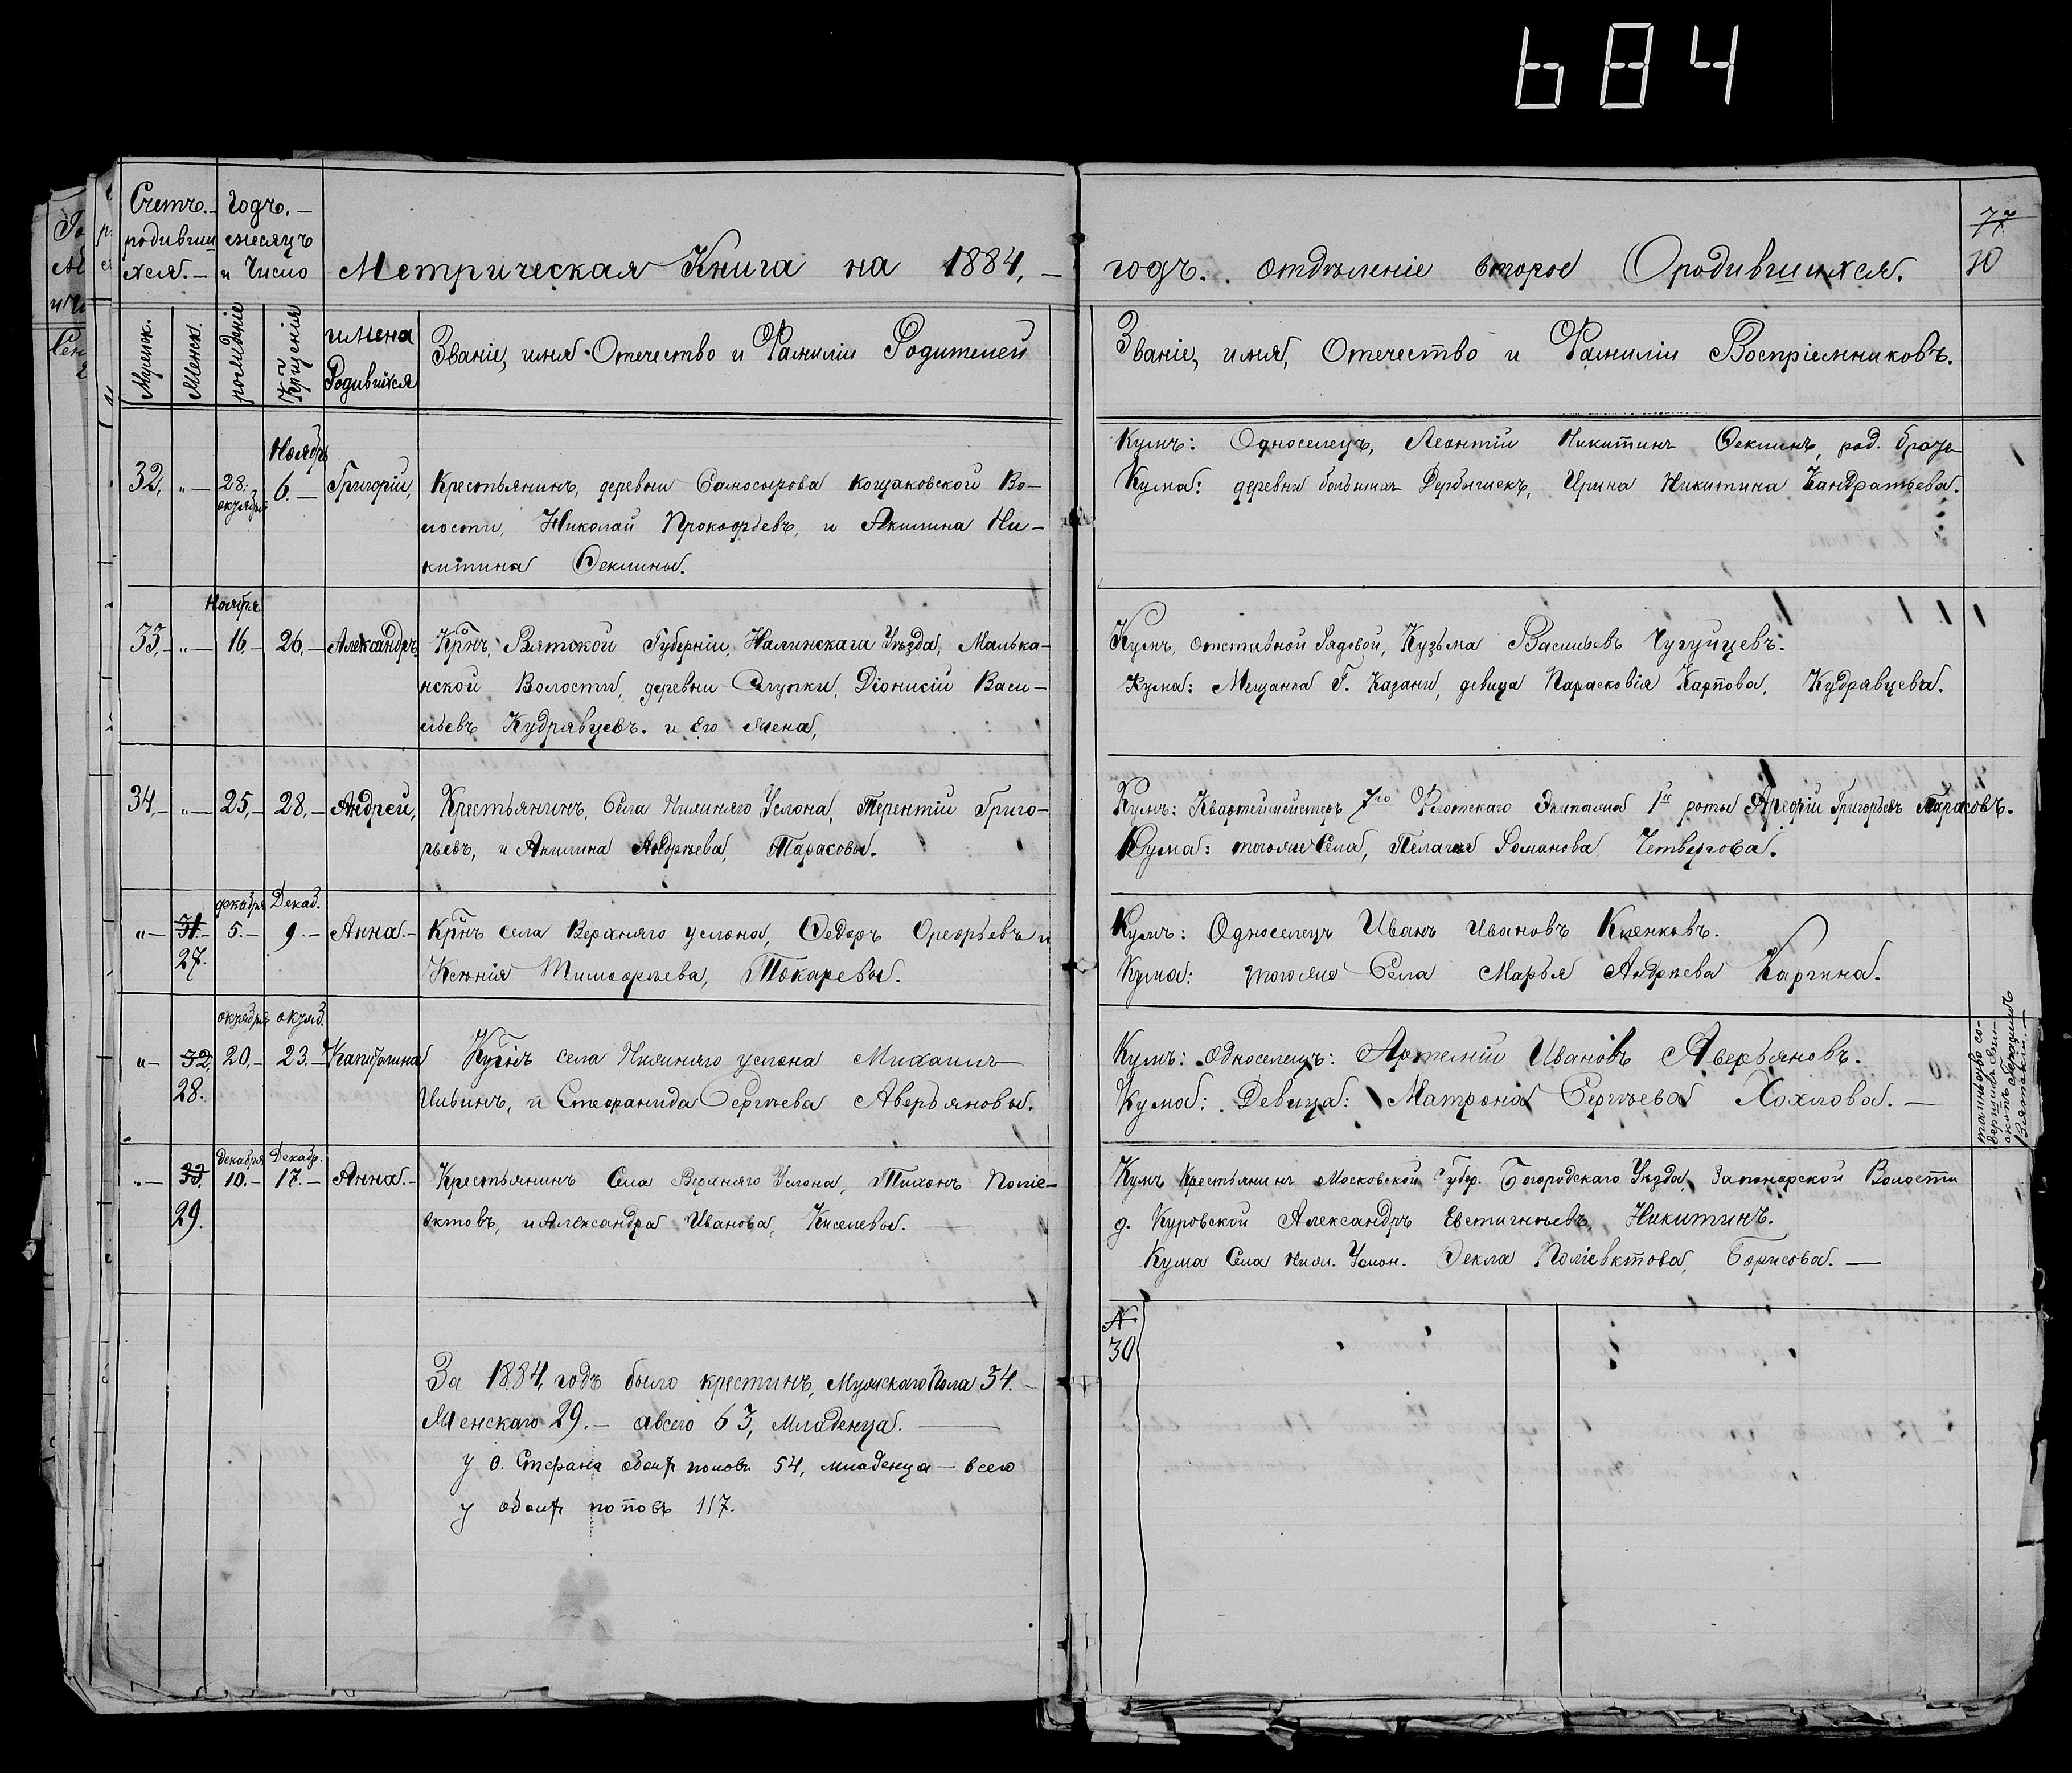 684
Счетъ. Годъ.
родивши месяцъ
хся. и Число
Метрическая Книга на 1884,
годъ. отдѣленіе второе О родившихся.
77
70
Мужеск.
Женск.
рожденіе
Крещенія
имена
Родившихся
Званіе, имя Отечество и Фамиліи Родителей
Званіе, имя, Отечество и Фамиліи Воспріемниковъ.
Ноябрь
32, „ 28. октября 6. Григорій, Крестьянинъ, деревни Самосырова Кощаковской Во-
лости, Николай Прокофьевъ, и Акилина Ни-
китина Феклины.
Кумъ: Односелецъ, Леонтій Никитинъ Феклинъ, род.
Кума: деревни большихъ Дербышекъ, Ирина Никитина Кандратьева.
Ноября
33, „ 16 26, Александръ, Крнъ, Вятской Губерніи, Налинскага Уѣзда, Малька-
нской Волости, деревни Ягупки, Діонисій Васи-
льевъ Кудрявцевъ. и Его Жена,
Кумъ, отставной Рядовой, Кузьма Васильевъ Чугуйцевъ.
Кума: Мещанка Г. Казани, девица Парасковія Карпова, Кудрявцева.
34, „ 25, 28, Андрей, Крестьянинъ, Села Нижняго Услона, Терентій Григо-
рьевъ, и Акилина Андреева, Тарасовы.
Кумъ: Квартеймейстеръ 7го Флотскаго Экипажа 1й роты Арефій Григорьевъ Тарасовъ.
Кума: тогоже Села, Пелагея Романова Четвергова.
декабря Декаб.
„ 31. 5. 9. Анна. Крнъ села Верхняго услона, Федоръ Орефьевъ и
27. Ксенія Тимофеева, Токаревы.
Кумъ: Односелецъ Иванъ Ивановъ Кленковъ.
Кума: тогоже Села Марья Андреева Каргина.
октября октяб.
„ 32, 20, 23. Капитолина села Нижняго услона Михаилъ
28. Ильинъ, и Стефанида Сергѣева Аверьяновы.
Кумъ: Односелецъ: Артемій Ивановъ Аверьяновъ.
Кума: Девица: Матрона Сергѣева Хохлова.
таинство со-
вершилъ
Декабря Декабр.
„ 33. 10. 17. Анна. Крестьянинъ Села Верхняго Услона, Тихонъ Поліе-
29. вктовъ, и Александра Иванова, Киселевы.
Кумъ Крестьянинъ Московской Губер. Богородскаго Уѣзда, Запонорской Волости
д. Куровской Александръ Евстигнѣевъ, Никитинъ.
Кума Села Ниж. Услон. Фекла Поліевктова, Борисова.
30
За 1884, годъ было крестинъ, Мужскаго Пола 34.
Женскаго 29. авсего 63, Младенца.
у О. Стефана обоих половъ 54, младенца всего
у обоих поповъ 117.